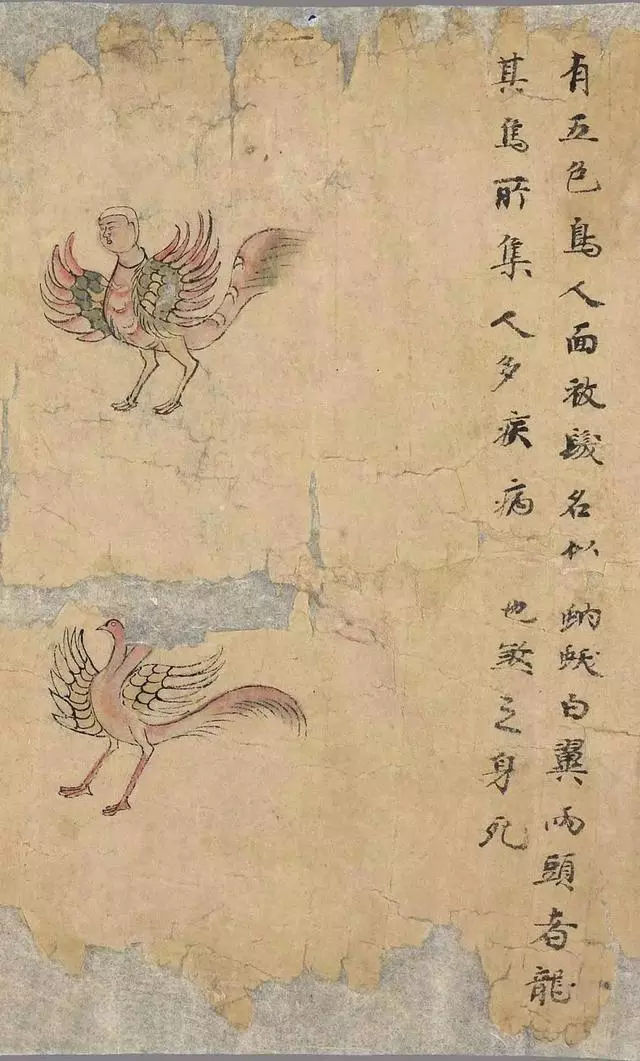 有五色鳥人面被髮名似
其鳥所集人多疾病
蛾白翼兩頭者龍
也煞之身死